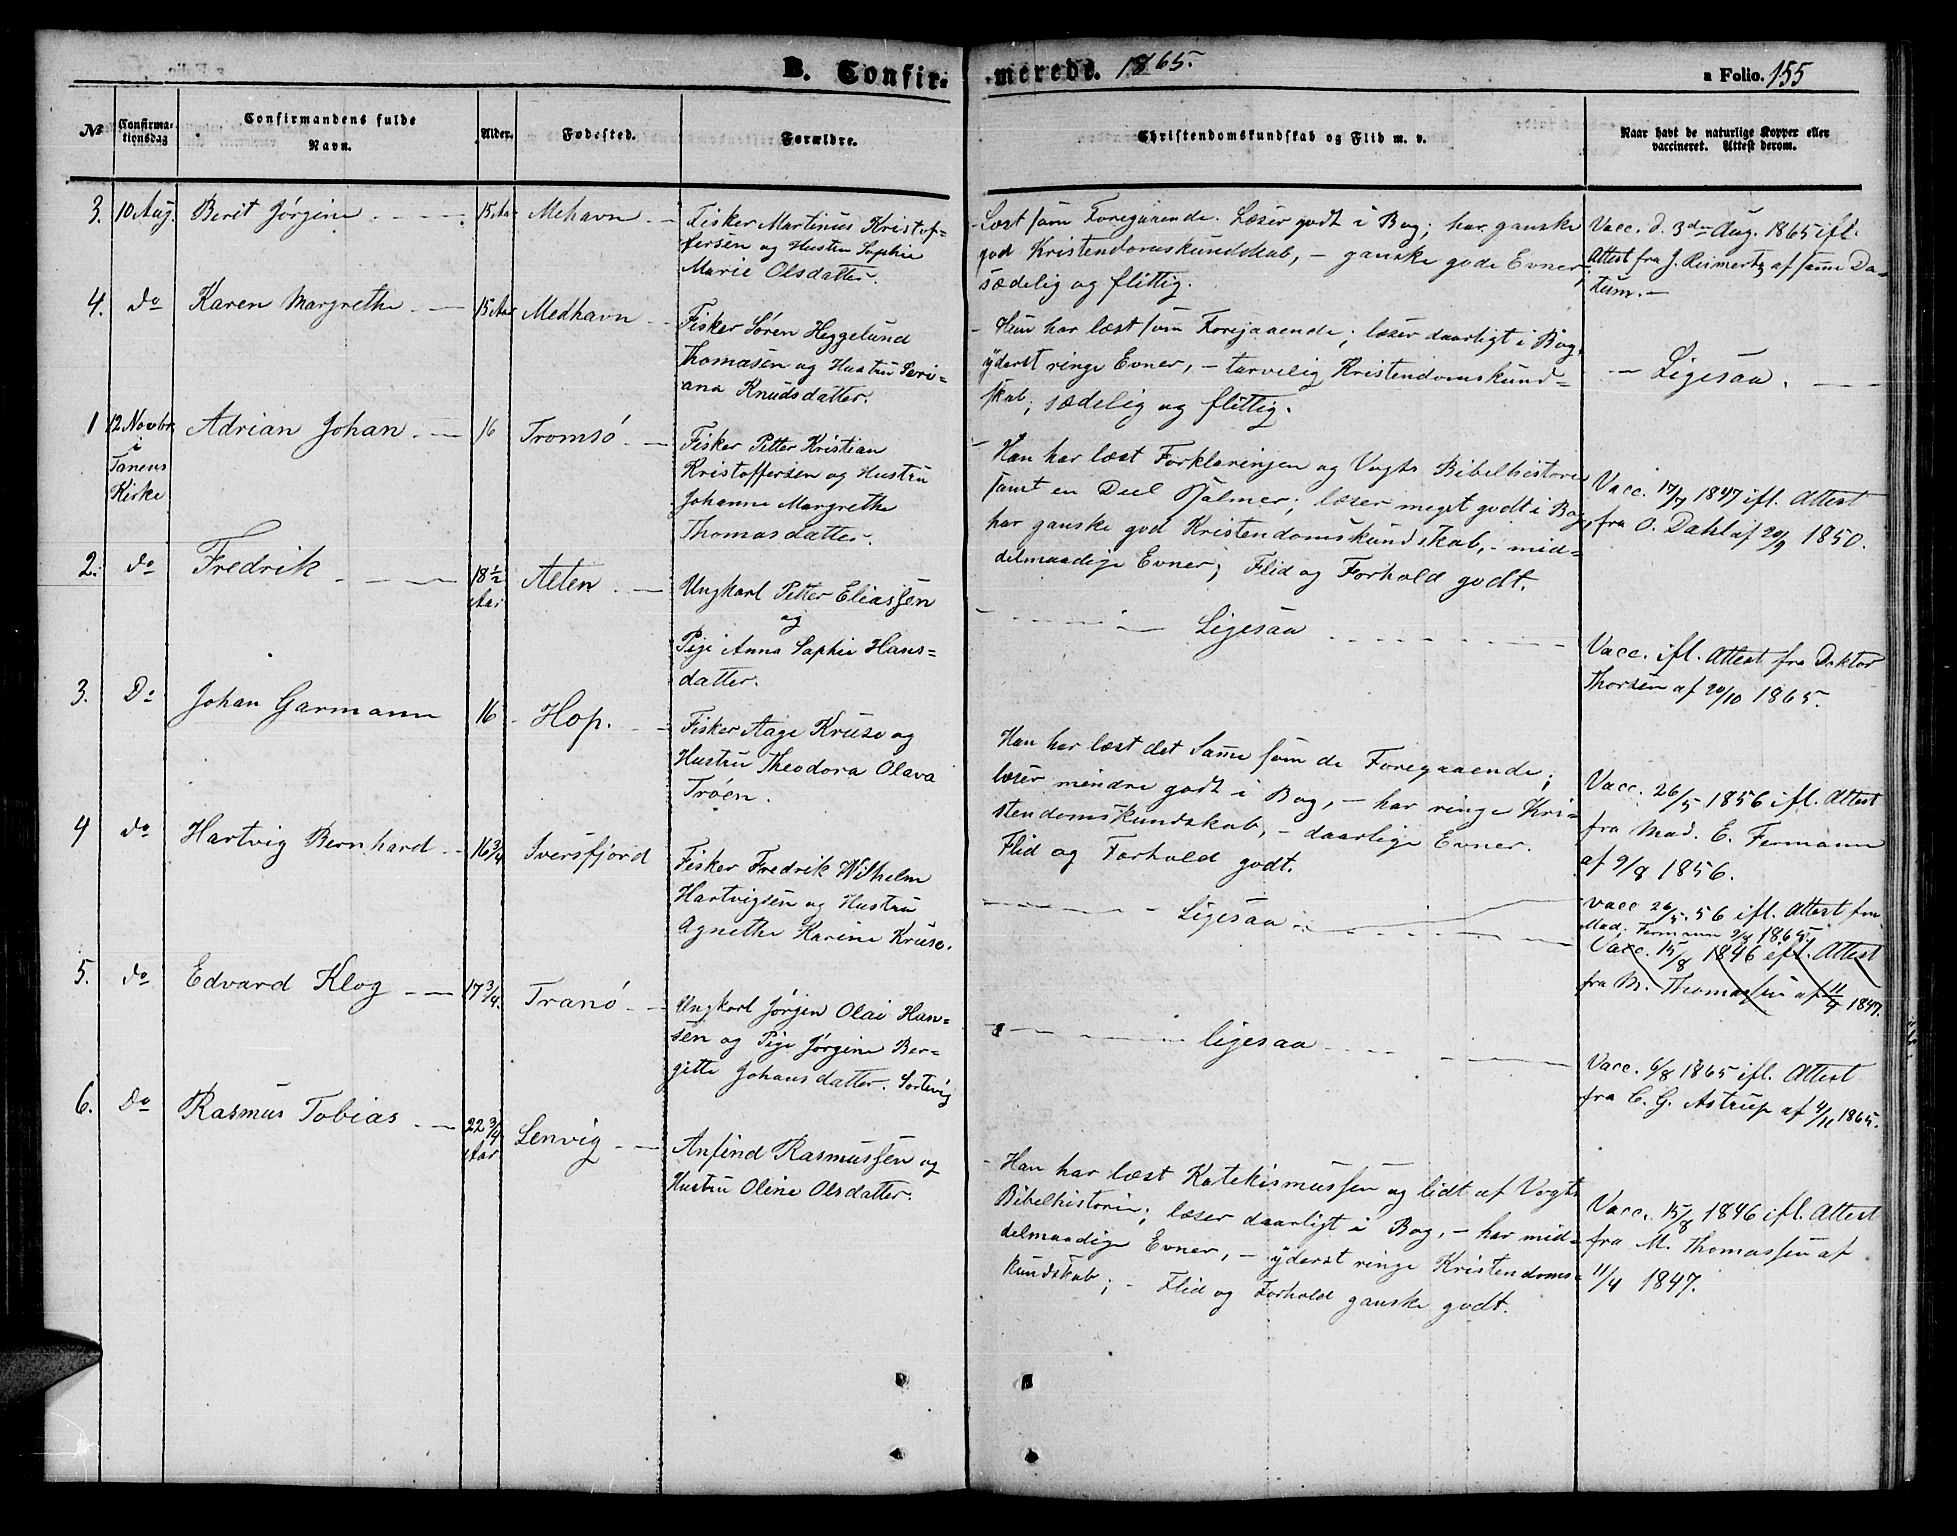 B. Confir- merede. 1865.
a Folio. 155
No
Confirma-
tionsdag
Confirmandens fulde
Navn.
Alder.
Fødested.
Forældre.
Christendomskundskab og Flid m. v.
Naar havt de naturlige Kopper eller
vaccineret. Attest derom.
3. 10 Aug. Berit Jørgine 15 Aar Mehavn
Fisker Martinus Kristof-
fersen og Hustru Sophie
Marie Olsdatter.
Læst som Foregaaende. Læser godt i Bog; har ganske
god Kristendomskundskab, - ganske gode Evner;
sædelig og flittig.
Vacc. d. 3die Aug. 1865 ifl.
Attest fra J. Reimertz af samme Da-
tum. -
4. do Karen Margrethe 15 Aar Medhavn
Fisker Søren Heggelund
Thomasen og Hustru Seri-
ana Knudsdatter.
Hun har læst som Foregaaende; læser daarligt i Bog,
yderst ringe Evner, - tarvelig Kristendomskund-
skab; sædelig og flittig.
Ligesaa.
1 12 Novbr. i Tanens Kirke Adrian Johan 16 Tromsø
Fisker Petter Kristian
Kristoffersen og Hustru
Johanne Margrethe
Thomasdatter.
Han har læst Forklaringen og Vogts Bibelhistorie
samt en Deel Psalmer; læser meget godt i Bog,
har ganske god Kristendomskundskab, - mid-
delmaadige Evner; Flid og Forhold godt.
Vacc. 17/7 1847 ifl. Attest
fra O. Dahl af 20/9 1850.
2. do Fredrik 18 1/2 Aar Alten
Ungkarl Petter Eliassen
og
Pige Anna Sophie Hans-
datter.
Ligesaa
Vacc. ifl. Attest fra Doktor
Thorsen af 20/10 1865.
3. Do Johan Garmann 16 Hop.
Fisker Aage Kruse og
Hustru Theodora Olava
Trøen.
Han har læst det Samme som de Foregaaende;
læser mindre godt i Bog, - har ringe Kri-
stendomskundskab, - daarlige Evner.
Flid og Forhold godt.
Vacc. 26/5 1856 ifl. Attest
fra Mad. E. Fermann
af 9/8 1856.
4 do Hartvig Bernhard 16 3/4 Sversfjord
Fisker Fredrik Wilhelm
Hartvigsen og Hustru
Agnethe Karine Kruse.
Ligesaa
vacc 26/5. 56 ifl. Attest fra
Mad. Fermann 9/8 1865.
Vacc. 15/8 1846 ifl. Attest
fra M. Thomassen af 11/4 1847.
5. do Edvard Klog 17 3/4. Tranø
Ungkarl Jørgen Olai Han-
sen og Pige Jørgine Ber-
gitte Johansdatter. Sortvig
Ligesaa
Vacc. 6/8 1865 ifl. Attest
fra C. G. Astrup af 4/11 1865.
6. Do Rasmus Tobias 22 3/4 Aar Lenvig
Anfind Rasmussen og
Hustru Oline Olsdatter.
Han har læst Katekismussen og lidt af Vogts
Bibelhistorie; læser daarligt i Bog, - har mid-
delmaadige Evner, - yderst ringe Kristendoms-
kundskab; - Flid og Forhold ganske godt.
Vacc. 15/8 1846 ifl. Attest
fra M. Thomassen af
11/4 1847.